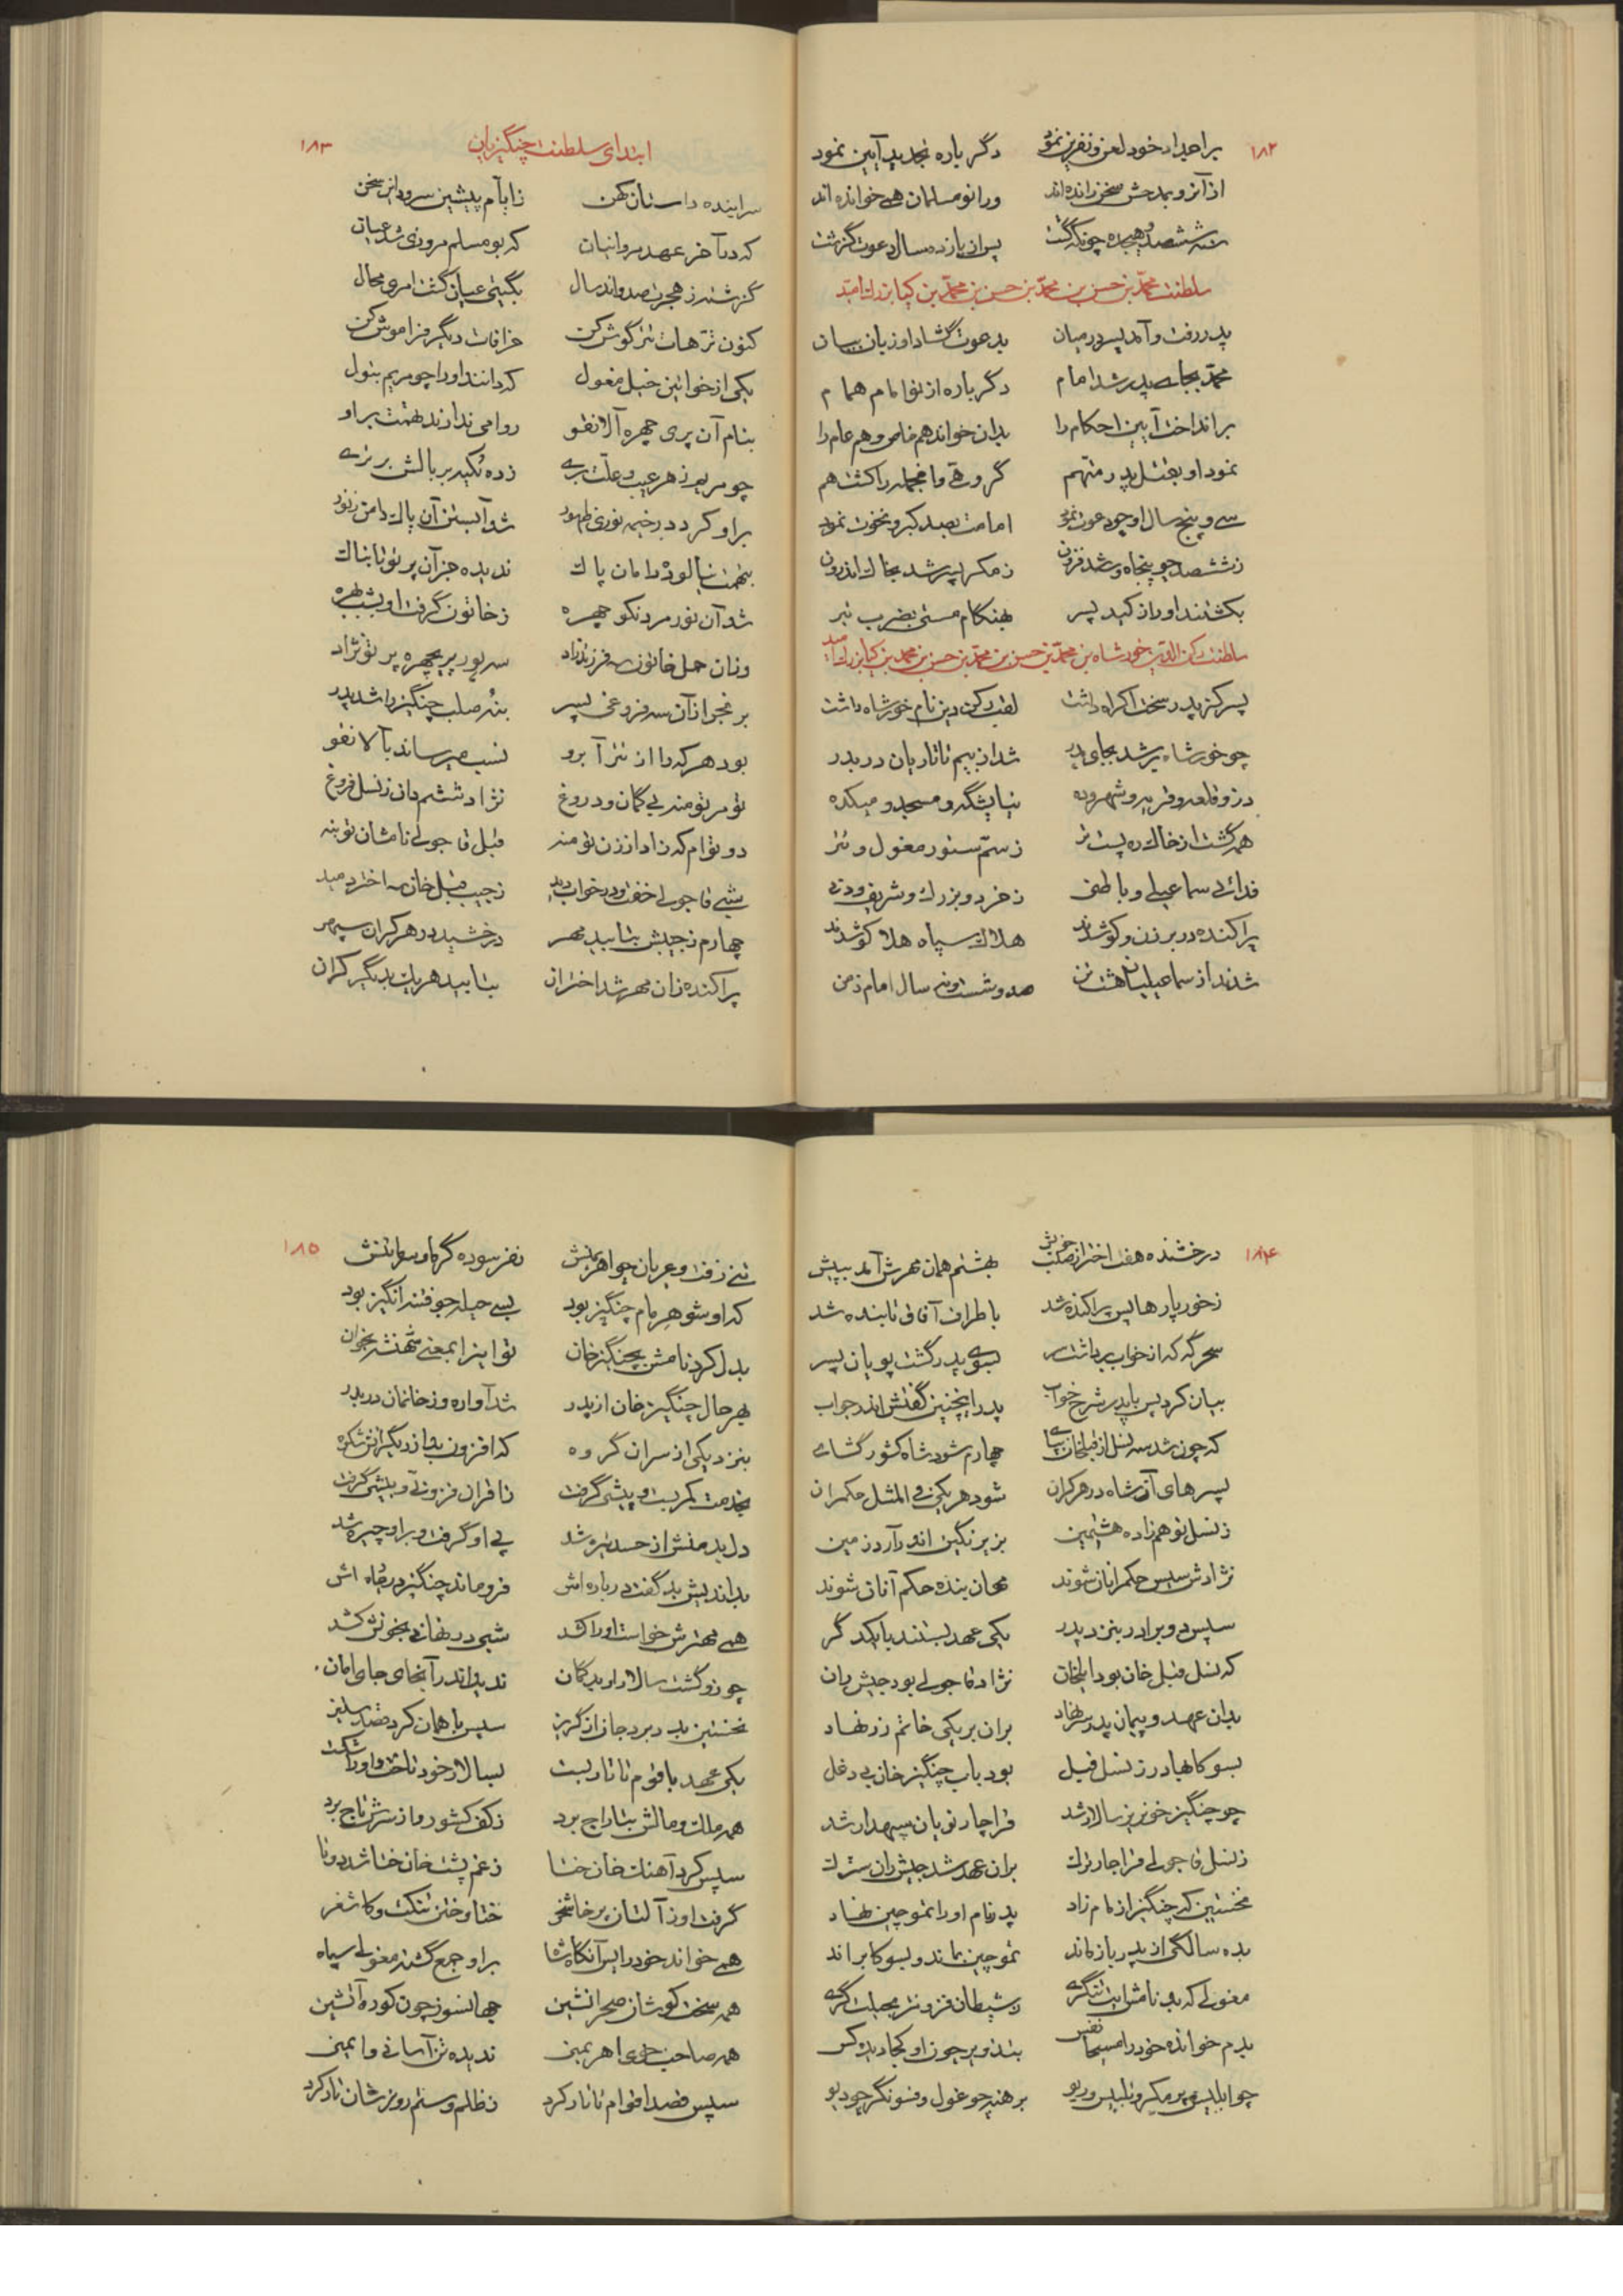 ۱۸۲
بر اجداد خود لعن و نفرین نمود دگرباره تجدید آیین نمود
از آنرو بمدحش سخن رانده‌اند ورا نو مسلمان همی خوانده‌اند
سنه ششصد و هیجده چونکه گشت پس از یازده سال دعوت گذشت
سلطنت محمد بن حسن بن محمد بن حسن بن محمد بن کیا بزرک امید
پدر رفت و آمد پسر در میان بدعوت گشاد او زبان بیان
محمد بجای پدر شد امام دگرباره از نو امام همام
برانداخت آیین احکام را بدان خواند هم خاص و هم عام را
نمود او بقتل پدر متهم گروهی و فی‌الجمله را کشت هم
سی و پنج سال او چو دعوت نمود امامت بصد کبر و نخوت نمود
ز ششصد چو پنجاه و سه شد فزون ز مکر پسر شد بخاک اندرون
بکشتند او را ز کید پسر بهنگام مستی بضرب تبر
سلطنت رکن الدین خورشاه بن محمد بن حسن بن محمد بن حسن بن محمد بن کیا بزرک امید
پسر کز پدر سخت اکراه داشت لقب رکن دین نام خورشاه داشت
چو خورشاه بر شد بجای پدر شد از بیم تاتاریان در بدر
دز و قلعه و قریه و شهر و ده نیایشگه و مسجد و میکده
همه گشت از خاک ره پست تر ز سم ستور مغول و تتر
فدائی سماعیلی و باطنی ز خرد و بزرک و شریف و دنی
پراکنده در برزن و کو شدند هلاک سپاه هلاکو شدند
شدند از سماعیلیان هشت تن صد و شست و نه سال امام زمن
ابتدای سلطنت چنگیزیان
۱۸۳
سراینده داستان کهن ز ایام پیشین سرود این سخن
که در آخر عهد مروانیان که بومسلم مروزی شد عیان
گذشته ز هجرت صد و اند سال بگیتی عیان گشت امری محال
کنون ترهات تتر گوش کن خرافات دیگر فراموش کن
یکی از خواتین خیل مغول که دانند او را چو مریم بتول
بنام آن پری چهره آلانقو روا می ندارند تهمت بر او
چو مریم ز هر عیب و علت بری زده تکیه بر بالش برتری
بر او کرد در خیمه نوری ظهور شد آبستن آن پاک دامن ز نور
بتهمت نیالود دامان پاک ندیده جز آن پرتو تابناک
شد آن نور مرد نکو چهره ز خاتون گرفت او بشب بهره
وزان حمل خاتون سه فرزند زاد سه پور پریچهره پرتو نژاد
بزنجر از آن سه فروغی پسر بنه صلب چنگیز را شد پدر
بود هر که را از تتر آبرو نسب میرساند بآلانقو
تومر تومنه بی گمان و دروغ نژاد ششم دان ز نسل فروغ
دو توام که زاد از زن تومنه قبل قاجولی نامشان تو بنه
شبی قاجولی خفت و در خواب دید ز جیب قبل خان سه اختر دمید
چهارم ز جیبش بتابید مهر درخشید در هر کران سپهر
پراکنده زان مهر شد اختران بتابید هر یک بدیگر کران
۱۸۴
درخشنده هفت اختر از صلب خویش بهشتم همان مهرش آمد بپیش
ز خور پارها پس پراکنده شد باطراف آفاق تابنده شد
سحرگه که از خواب برداشت سر بسوی پدر گشت پویان پسر
بیان کرد پس با پدر شرح خواب پدر اینچنین گفتش اندر جواب
که چون شد سه نسل از قبلخان بپای چهارم شود شاه کشور گشای
پسرهای آن شاه در هر کران شود هر یکی فی المثل حکمران
ز نسل تو هم زاده هشتمین بزیر نگین اندر آرد زمین
نژادش سپس حکمرانان شوند جهان بنده حکم آنان شوند
سپس دو برادر بنزد پدر یکی عهد بستند با یکدگر
که نسل قبل خان بود ایلخان نژاد قاجولی بود جیش ران
بدان عهد و پیمان پدر سر نهاد بران بر یکی خاتم زر نهاد
یسوکا بهادر ز نسل قبل بود باب چنگیز خان بی دغل
چو چنگیز خونریز سالار شد قراچار نویان سپهدار شد
ز نسل قاجولی قراجار ترک بران عهد شد جیش ران سترک
نخستین که چنگیز از مام زاد پدر نام او را تموچین نهاد
بده سالگی از پدر باز ماند تموچین بماند و یسوکا براند
مغولی که بد نامش ابت تنگری ز شیطان فزونتر بحیلت گری
بدم خوانده خود را مسیحا نفس بتذویر چون او کجا دیده کس
چو ابلیس پر مکر و تلبیس و ریو برهنه چو غول و فسونگر چو دیو
۱۸۵
تنی زفت و عریان چو اهریمنش نفرسوده گرما و سرما تنش
که او شوهر مام چنگیز بود بسی حیله جو فتنه انگیز بود
بدل کرد نامش بچنگیز خان تو اینرا بمعنی شهنشه بخوان
بهر حال چنگیز خان از پدر شد آواره و ز خانمان در بدر
بنزد یکی از سران گروه که افزون بد از دیگرانش شکوه
بخدمت کمر بست و پیشی گرفت ز اقران فزونی و بیشی گرفت
دل بد منش از حسد تیره شد پی او گرفت و بر او چیره شد
بداندیش بد گفت درباره اش فروماند چنگیز در چاره اش
همی مهترش خواست او را کشد شبی در نهانی بخونش کشد
چو زو گشت سالار او بد گمان ندید اندر آنجای جای امان
نخستین بدر برد جان از گریز سپس با همان کرد قصد ستیز
یکی عهد با قوم تاتار بست بسالار خود تاخت و او را شکست
همه ملک و مالش بتاراج برد ز کف کشور و از سرش تاج برد
سپس کرد آهنک خان ختا ز غم پشت خان ختا شد دوتا
گرفت او ز آلتان پرخاشخر ختا و ختن تنکت و کاشغر
همی خواند خود را پس آنگاه شاه بر او جمع گشته مغولی سپاه
همه سخت کوشان صحرانشین جهانسوز چون کوره آتشین
همه صاحب خوی اهریمنی ندیده تن آسانی و ایمنی
سپس قصد اقوام تاتار کرد ز ظلم و ستم روزشان تار کرد